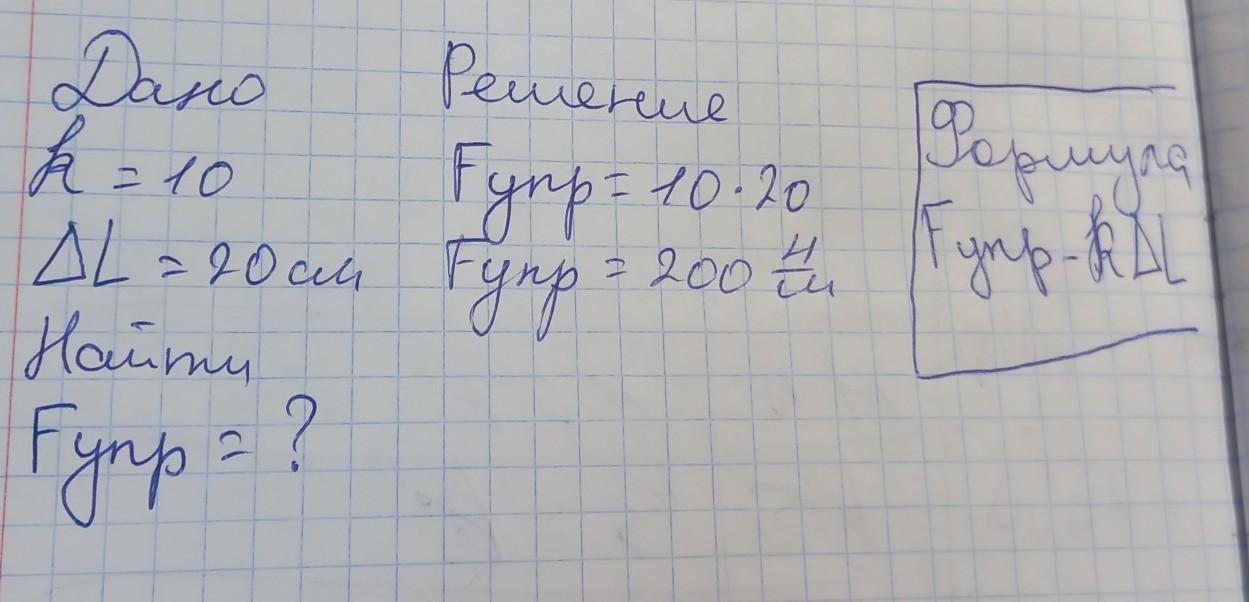 Дано
k = 10
ΔL = 20 см
Найти
Fупр = ?
Решение
Fупр = 10 · 20
Fупр = 200 Н/см
Формула
Fупр - kΔL